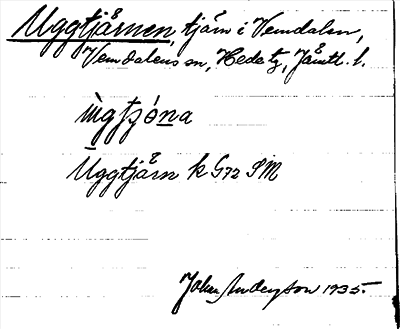 Uggtjärnen, tjärn i Vemdalen,
Vemdalens sn, Hede tg, Jämtl. l.
Uggtjärn k G72 SM
John Anderson 1935.